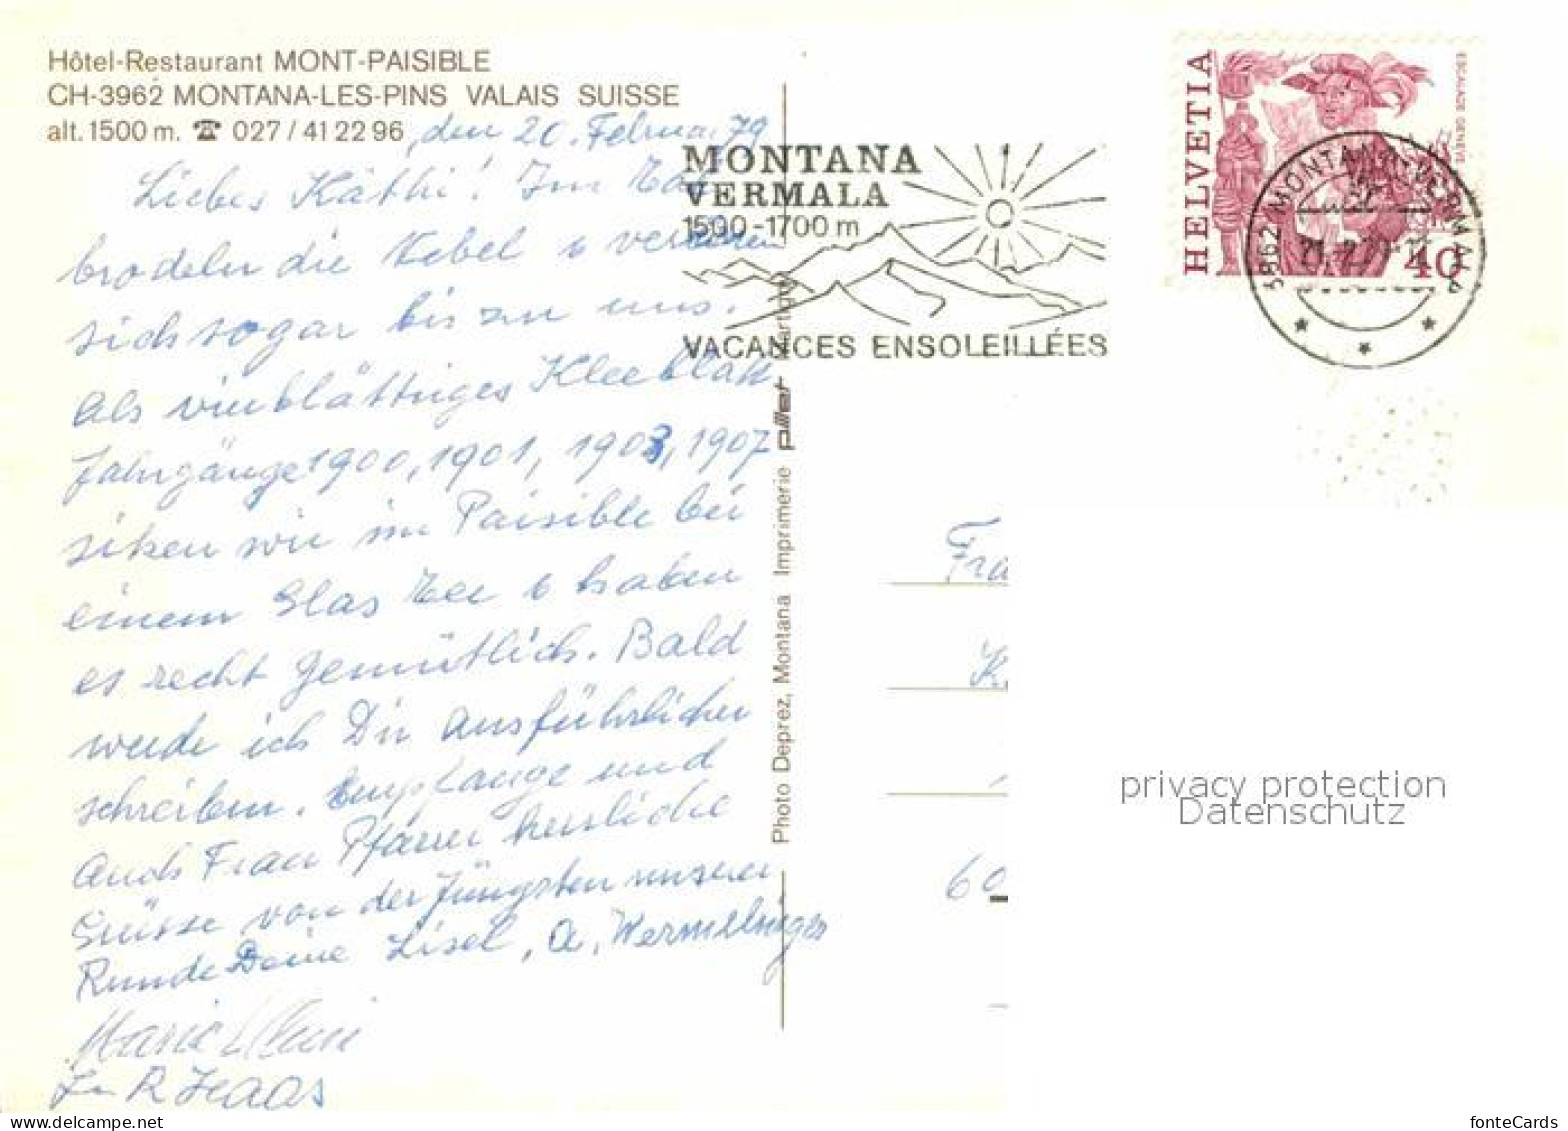 Hôtel-Restaurant MONT-PAISIBLE
CH-3962 MONTANA-LES-PINS VALAIS SUISSE
alt. 1500 m. ☎ 027 / 41 22 96
, den 20. Februa. 79
Liebes Käthi! Im Tal
brodeln die Nebel u
sich sogar bis zu uns.
Als vierblättriges Kleeblatt
Jahrgänge 1900, 1901, 1903, 1907
sitzen wir im Paisible bei
einem Glas Tee u haben
es recht gemütlich. Bald
werde ich Dir ausführlicher
schreiben. Empfange und
Auch Frau Pfarrer herzliche
Grüsse von der Jüngsten unserer
Runde Deine Lisel, A. Wermelinger
Marie
R Haas
MONTANA
VERMALA
1500-1700 m
VACANCES ENSOLEILLÉES
HELVETIA
ESCALADE GENÈVE
40
3962 MONTANA-VERMALA
21.2.79
Photo Deprez, Montana Imprimerie pillet Martigny
Fra
K
60
privacy protection
Datenschutz
www.delcampe.net
fonteCards